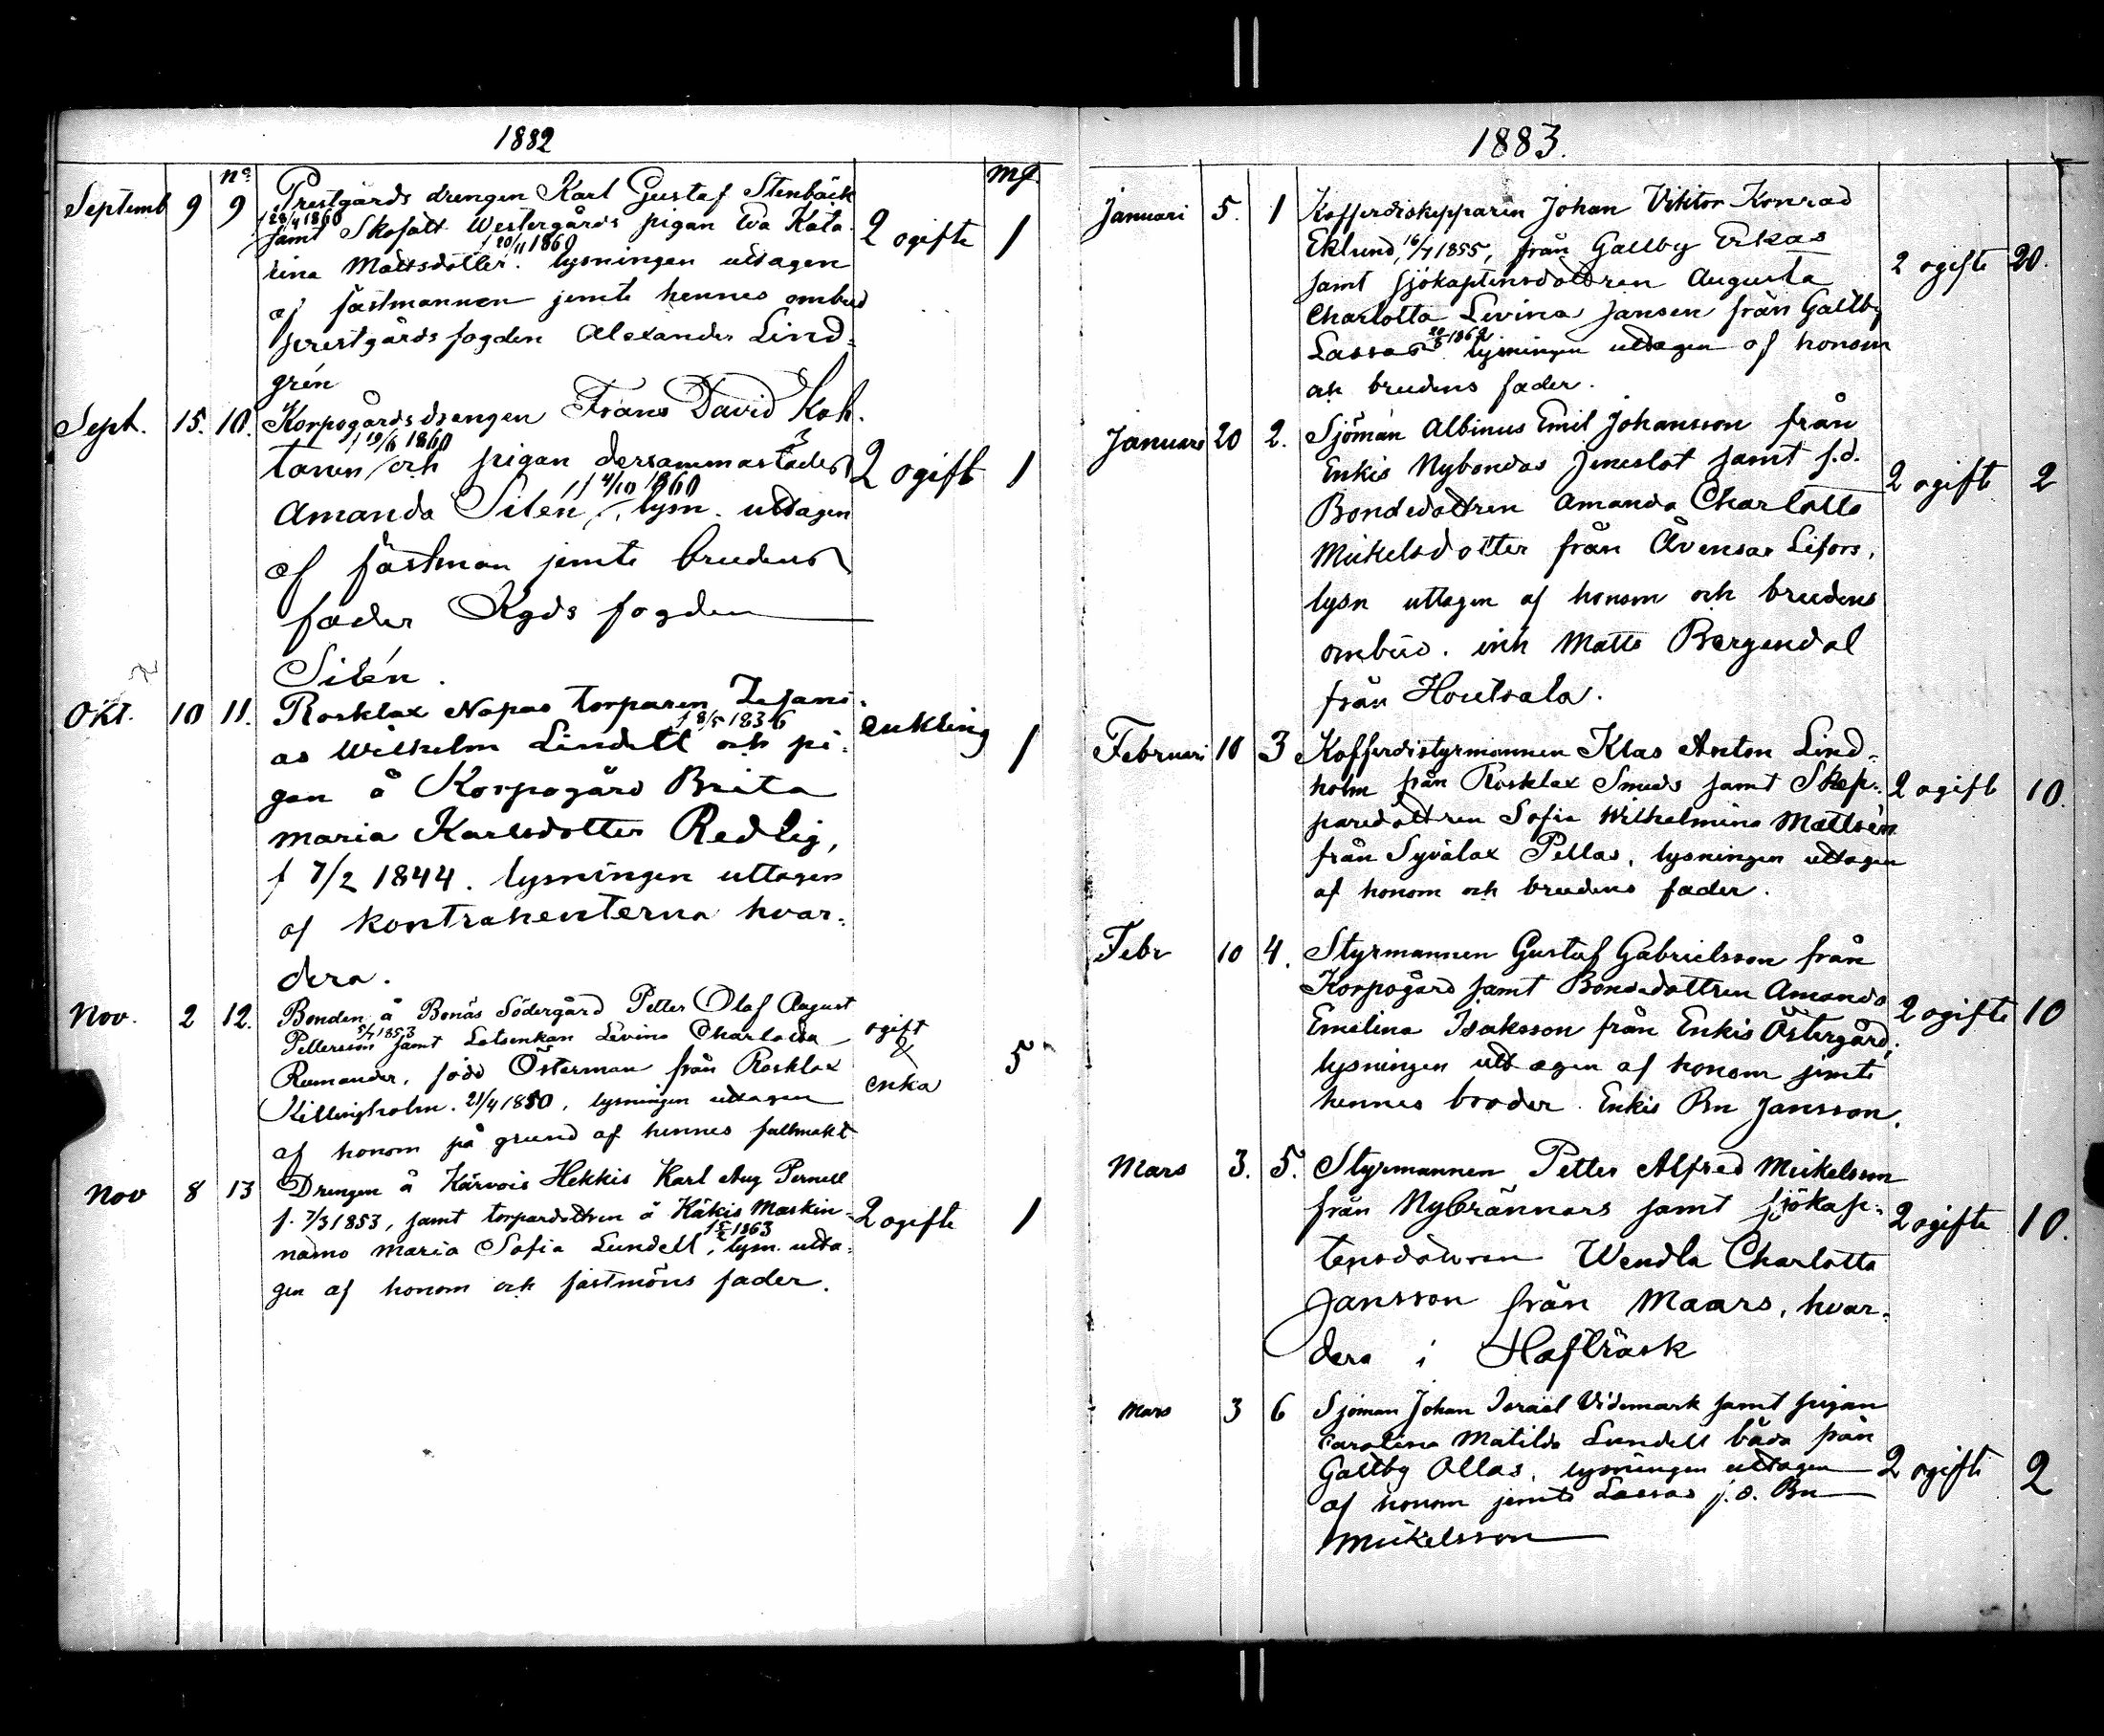 1882
nº
mf.
Septemb 9 9 Prestgårds drengen Karl Gustaf Stenbäck
f 28/4 1860
samt Skofält Westergårds pigan Eva Kata-
f 20/11 1860
rina Mattsdotter. lysningen uttagen
2 ogifte 1
af fästmannen jemte hennes ombud
prestgårdsfogden Alexander Lind=
grén
Sept. 15. 10. Korpogårdsdrengen Frans David
f 19/6 1860
och pigan dersammastädes
2 ogift 1
f 4/10 1860
Amanda Silén, lysn. uttagen
af fästman jemte brudens
fader Kgds fogden
Silén.
Okt. 10 11. Rosklax Napas torparen Zefani-
f 8/5 1836
as Wilhelm Lindell och pi-
enkling 1
gan å Korpogård Brita
Maria Karlsdotter Redlig,
f 7/2 1844. lysningen uttagen
af kontrahenterna hvar-
dera.
Nov. 2 12. Bonden å Bonäs Södergård Petter Olof August
5/7 1853
Pettersson samt Lotsenkan Levina Charlotta
ogift
&
enka
5
Rumander, född Österman från Rosklax
Killingholm. 21/4 1850, lysningen uttagen
af honom på grund af hennes fullmakt
Nov 8 13 Drengen å Kärvois Hekkis Karl Aug Pernell
f. 7/3 1853, samt torpardottren å Käkis Maskin-
2 ogifte 1
1863
namo Maria Sofia Lundell, lysn. utta-
gen af honom och fästmöns fader.
1883.
Januari 5. 1 Kofferdiskepparen Johan Viktor Konrad
Eklund, 16/7 1855, från Gallby Erkas
2 ogifte 20.
samt sjökaptensdottren Augusta
Charlotta Levina Jansen från Gallby
Lassas lysningen uttagen af honom
och brudens fader.
Januari 20 2. Sjöman Albinus Emil Johansson från
Enkis Nybondas samt f.d.
2 ogifte 2
Bondedottren Amanda Charlotta
Mickelsdotter från Åvensor Lifors,
lysn uttagen af honom och brudens
ombud. inh Matts Bergendal
från Houtsala.
Februari 10 3 Kofferdistyrmannen Klas Anton Lind-
holm från Rosklax Smeds samt Skep-
2 ogift 10.
paredottren Sofia Wilhelmina Mattsén
från Syvälax Pellas, lysningen uttagen
af honom och brudens fader.
Febr 10 4. Styrmannen Gustaf Gabrielsson från
Korpogård samt Bondedottren Amanda
2 ogifte 10
Emelina Isaksson från Enkis Östergård,
lysningen uttagen af honom jemte
hennes broder Enkis Bn Jansson.
Mars 3. 5. Styrmannen Petter Alfred Mickelsson
från Nybrännars samt sjökap-
2 ogifte 10.
tensdottren Wendla Charlotta
Jansson från Maars, hvar-
dera i Hafträsk
Mars 3 6 Sjöman Johan Israel Videmark samt pigan
Carolina Matilda Lundell båda från
Gallby Ollas, lysningen uttagen
2 ogifte 2
af honom jemte Lassas j.ä. Bn
Mickelsson